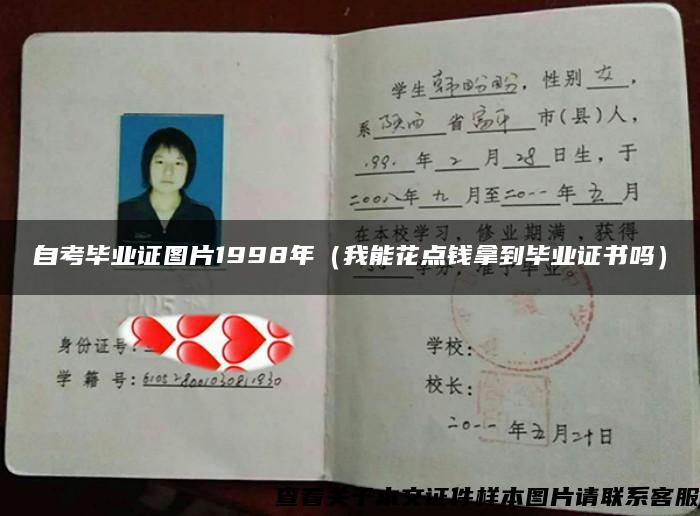 学生韩盼盼,性别女,
系陕西省富平市(县)人,
1991年2月28日生,于
二00八年九月至二0一一年五月
在本校学习,修业期满,获得
学分,准予毕业。
自考毕业证图片1998年(我能花点钱拿到毕业证书吗)
身份证号:
学籍号:
学校:
校长:
二0一一年五月二十日
查看关于本文证件样本图片请联系客服